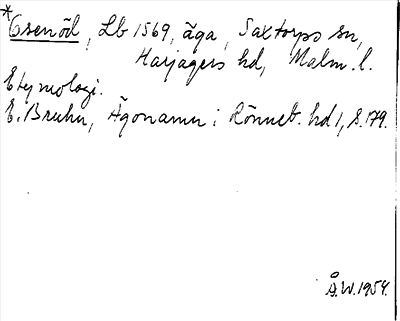 *Esenöd, Lb 1569, äga, Saxtorps sn,
Harjagers hd, Malm. l.
Etymologi.
E. Bruhn, Ägonamn i Rönneb. hd 1, s. 179.
Å.W. 1954.